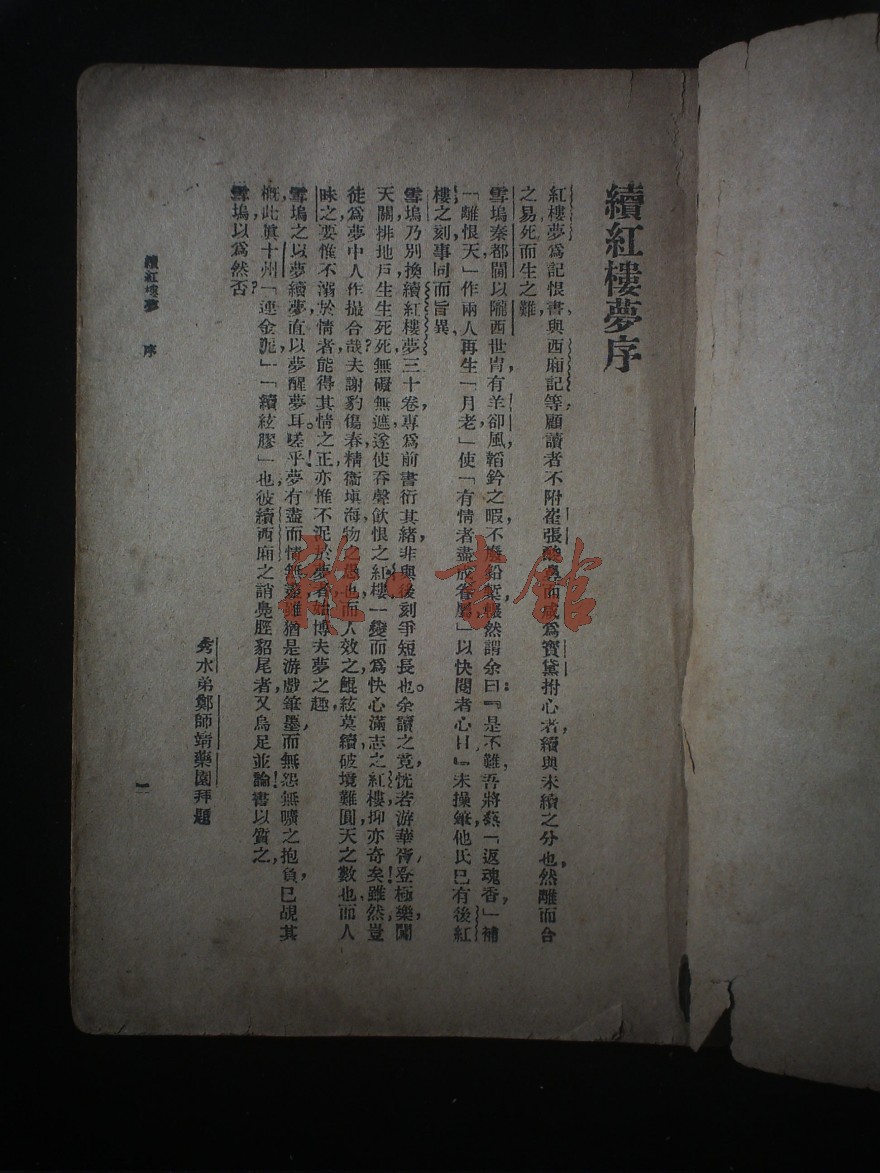 續紅樓夢序
紅樓夢爲記恨書與西廂記等顧讀者不附崔張而咸爲寳黛拊心者,續與未續之分也,然離而合
之易,死而生之難
雪塢秦都閫以隴西世胄有羊卻風,韜鈐之暇,不廢鉛槧,囅然謂余曰:『是不難,吾將爇「返魂香,」補
「離恨天,」作兩人再生「月老,」使「有情者盡成眷屬」以快閱者心目』未操筆,他氏已有後紅
樓之刻,事同而旨異
雪塢乃別換續紅樓夢三十卷,專爲前書衍其緒,非與後刻爭短長也。余讀之竟,恍若游華胥,登極樂,闖
天關,排地戶,生生死死,無礙無遮,遂使吞聲飲恨之紅樓,一變而爲快心滿志之紅樓,抑亦奇矣!雖然,豈
徒爲夢中人作撮合哉?夫謝豹傷春,精衞塡海,物之愚也,而人效之,鯤絃莫續,破境難圓,天之數也,而人
昧之,要惟不溺於情者,能得其情之正,亦惟不泥於夢者,始博夫夢之趣,
雪塢之以夢續夢,直以夢醒夢耳。嗟乎!夢有盡而情無盡,雖猶是游戲筆墨,而無怨無曠之抱負,已覘其
槪,此眞十州「連金泥」「續絃膠」也,彼續西廂之誚鳧脛貂尾者,又烏足並論!書以質之,
雪塢,以爲然否?
秀水弟鄭師靖藥園拜題
續紅樓夢 序
一
雜·書館